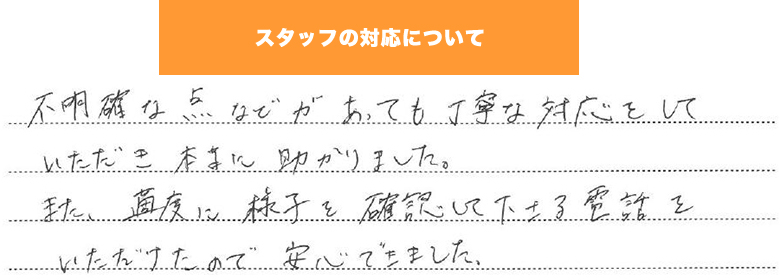 スタッフの対応について
不明確な点などがあっても丁寧な対応をして
いただき本当に助かりました。
また、適度に様子を確認して下さる電話を
いただけたので安心できました。